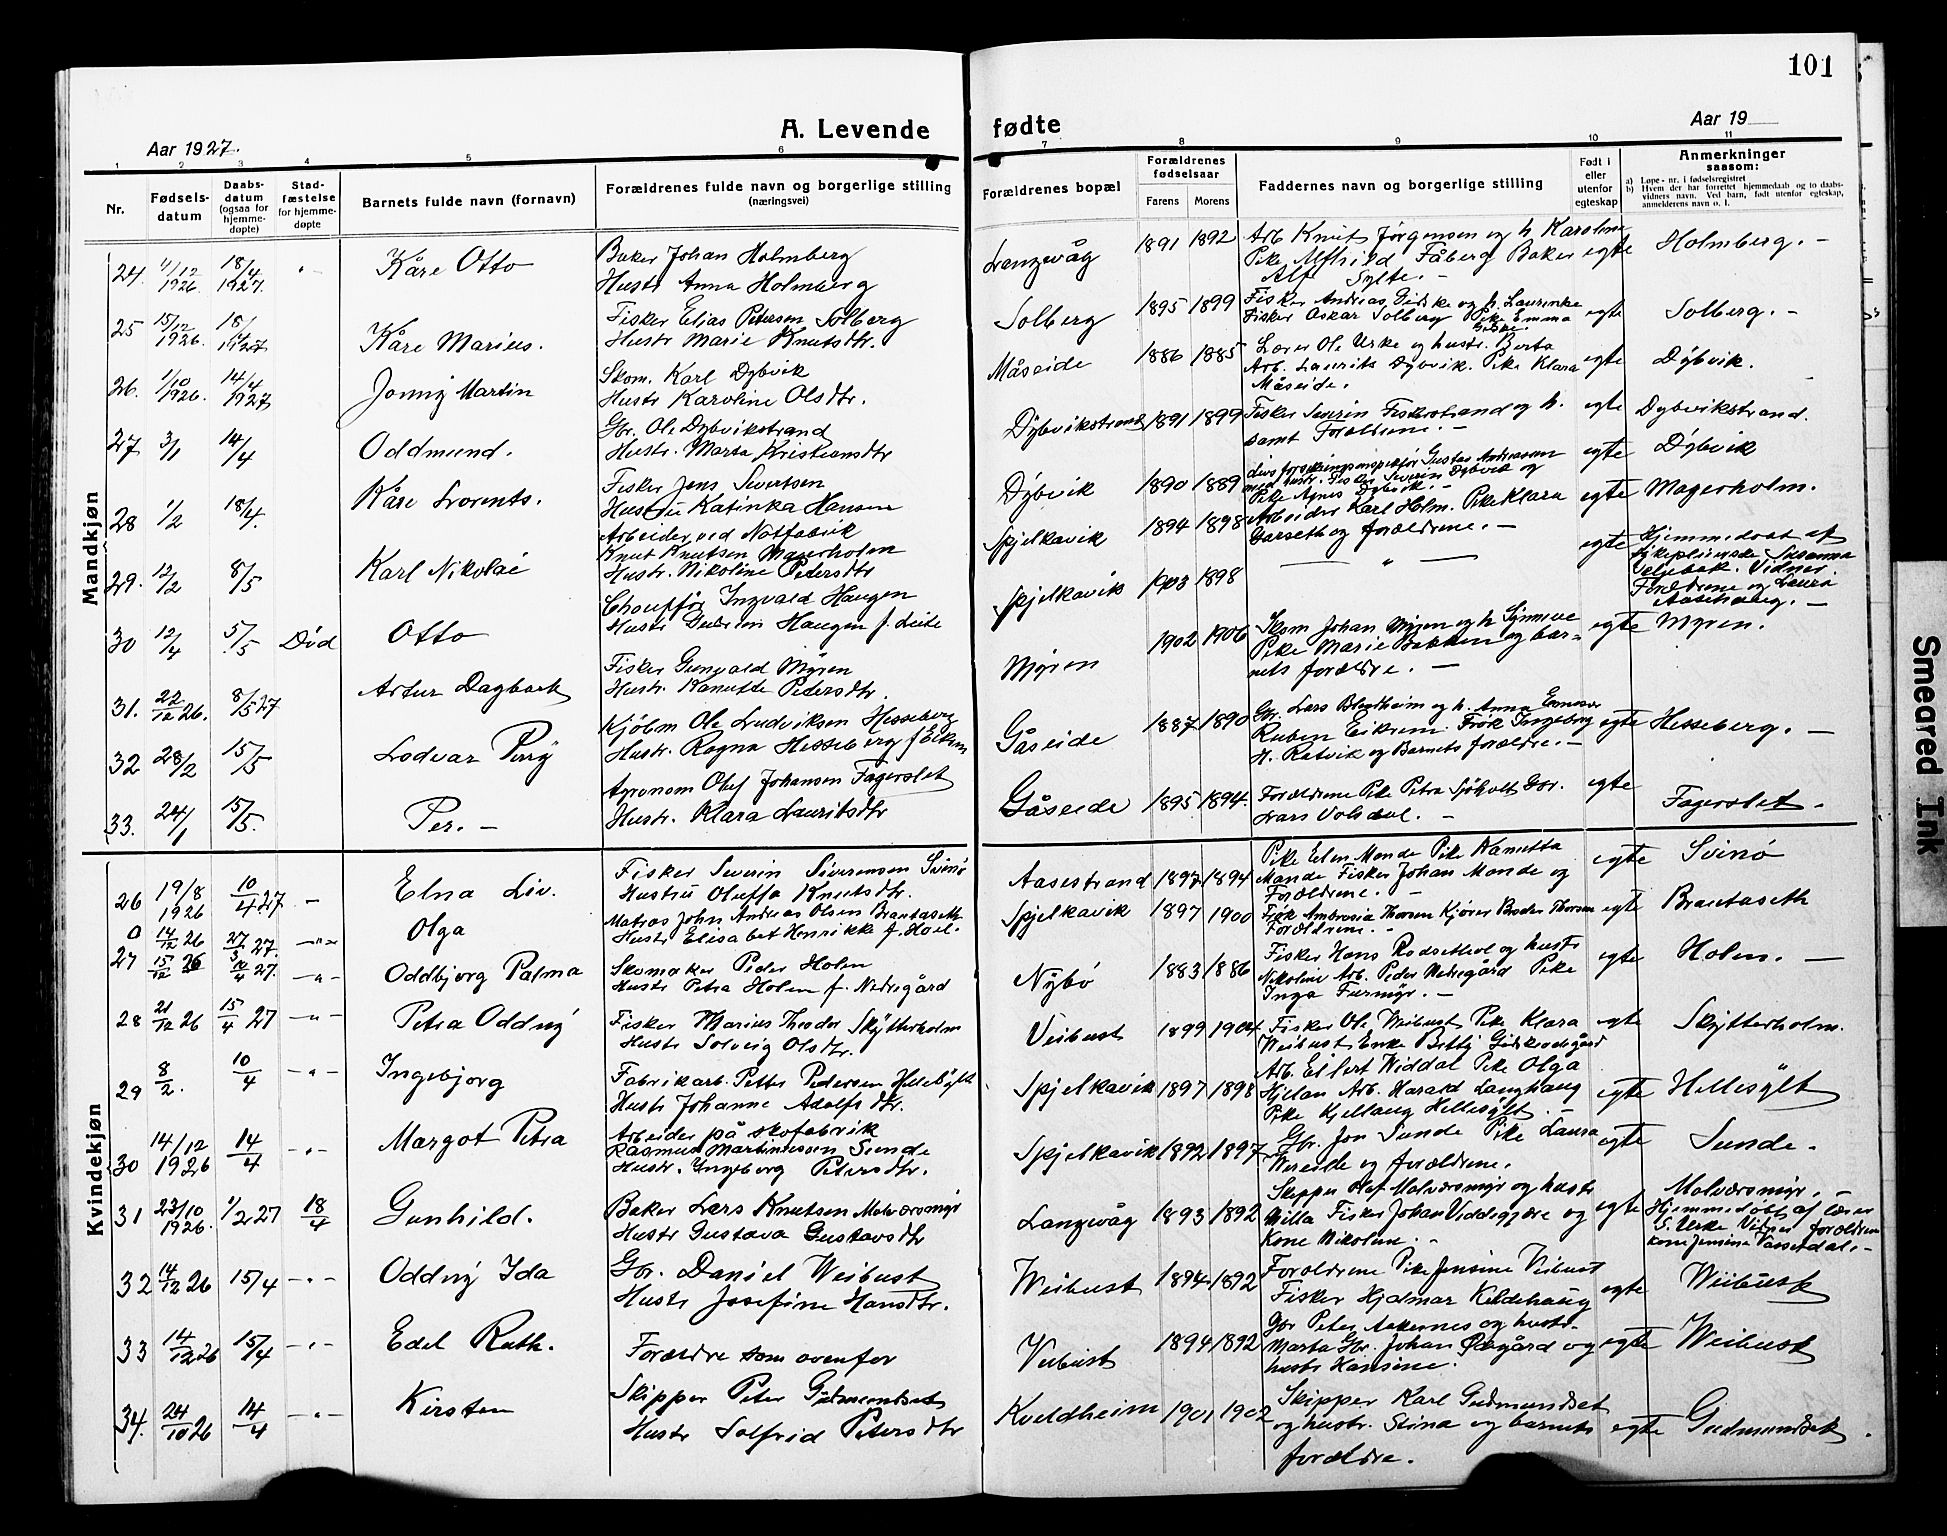 101
Aar 1927.
A. Levende fødte
Aar 19
1 2 3 4 5 6 7 8 9 10 11
Nr.
Fødsels-
datum
Daabs-
datum
(ogsaa for
hjemme-
døpte)
Stad-
fæstelse
for hjemme-
døpte
Barnets fulde navn (fornavn)
Forældrenes fulde navn og borgerlige stilling
(næringsvei)
Forældrenes bopæl
Forældrenes
fødselsaar
Farens Morens
Faddernes navn og borgerlige stilling
Født i
eller
utenfor
egteskap
Anmerkninger
saasom:
a) Løpe-nr. i fødselsregistret
b) Hvem der har forrettet hjemmedaab og to daabs-
vidners navn. Ved barn, født utenfor egteskap,
anmelderens navn o. l.
Mandkjøn
24. 1926. 18/4 1927. Kåre Otto
Baker Johan Holmberg
Hustr Anna Holmberg
Langevåg 1891 1892
Arb Knut Jørgensen og h. Karoline
Pike Alfhild Fåberg Baker
Alf Sylte. –
egte Holmberg. –
25 15/12 1926. 18/4 1927 Kåre Marius.
Fisker Elias Petersen Solberg
Hustr Marie Knutsdtr.
Solberg 1895 1899
Fisker Andreas Giske og h. Laurinke
Fisker Oskar Solberg Pike Emma
Giske.
egte Solberg. –
26. 1/10 1926. 14/4 1927 Jonny Martin
Skom. Karl Dybvik
Hustr Karoline Olsdtr.
Måseide 1886 1885
Lærer Ole Urke og hustr. Berta
Arb. Laurits Dybvik. Pike Klara
Måseide.
egte Dybvik.
27 3/1 14/4 Oddmund.
Gbr. Ole Dybvikstrand
Hustr. Marta Kristiansdtr
Dybvikstrand 1891 1899
Fisker Severin Fiskerstrand og h.
samt Forældrene. –
egte Dybvikstrand.
28 1/2 18/4. Kåre Lorents.
Fisker Jens Sivertsen
Hustru Katinka Hansen
Dybvik 1890 1889
Gustav Andreassen
med hustr. Fisker Severin Dybvik og
Pike Agnes Dybvik. –
egte Dybvik
29. 12/2 8/5 Karl Nikolai
Arbeider ved Notfabrik
Knut Knutsen Magerholm
Hustr. Nikoline Petersdtr
Spjelkavik 1894 1898
Arbeider Karl Holm. Pike Klara
Garseth og forældrene. –
egte Magerholm.
30 12/4 5/5 Død Otto
Chauffør Ingvald Haugen
Hustr Gudrun Haugen f. Leite
Spjelkavik 1903 1898
— " —
egte Hjemmedøbt af
sykepleierske Susanna
Vidner
Forældrene og Laura
31. 22/12 26. 8/5 27 Artur Dagbark
Fisker Gunvald Myren
Hustr. Kanutte Petersdtr.
Myren 1902 1906
Skom Johan Myren og h Synnøve
Pike Marie Bakken og bar-
nets forældre. –
egte Myren.
32 28/2 15/5 Lodvar Perry
Kjøbm Ole Ludviksen Hesseberg
Hustr. Ragna Hesseberg f Eikrem
Gåseide 1887 1890
Gbr. Lars Blindheim og h. Anna
Ruben Eikrem. Frøk Ingeborg
H. Ratvik og Barnets forældre. –
egte Hesseberg. –
33. 24/1 15/5. Per. –
Agronom Oluf Johansen Fagerslet
Hustr. Klara Lauritsdtr
Gåseide 1895 1894.
Forældrene Pike Petra Sjøholt Gbr.
Lars Volsdal. –
egte Fagerslet.
Kvindekjøn
26 19/8 1926 10/4 27 – Elna Liv.
Fisker Severin Siversen Svinø
Hustru Oluffa Knutsdtr.
Aasestrand 1897 1894
Pike Elen Mande Pike Kanutta
Mande Fisker Johan Mande og
Forældrene. –
egte Svinø
0 14/12 26 27/3 27. –"– Olga
Matros John Andreas Olsen Brantaseth
Hustr Elisabet Henrikke f. Hoel.
Spjelkavik 1897 1900
Frøk Ambrosia Thorsen Kjører Broder Thorsen
Forældrene. –
egte Brautaseth
27 15/12 26 10/4 27. –"– Oddbjørg Palma
Skomaker Peder Holm
Hustr Petra Holm f. Nedregård
Nybø 1883 1886
Fisker Hans Rødsethol og hustr
Nikoline Arb. Peder Nedregård Pike
Inga Furmyr. –
egte Holm. –
28 21/12 26 15/4 27 –"– Petra Oddny
Fisker Marius Theodor Skytterholm
Hustr Solveig Olsdtr.
Veibust 1899 1904
Fisker Ole Weibust Pike Klara
Weibust Enke Betty Giskeødegård
egte Skytterholm.
29 8/2. 10/4 –"– Ingebjørg
Fabrikarb. Petter Pedersen Hellesylt
Hustr Johanne Adolfsdtr.
Spjelkavik 1897 1898
Arb. Eilert Widdal Pike Olga
Hjelan Arb. Harald Langhaug
Pike Kjellaug Hellesylt. –
egte Hellesylt
30 14/12 1926 14/4 –"– Margot Petra
Arbeider på skofabrik
Rasmus Martinussen Sunde
Hustr. Ingeborg Petersdtr.
Spjelkavik 1892 1897
Gbr. Jon Sunde Pike Laura
og forældrene.
egte Sunde.
31 23/10 1926. 1/2 27 18/4 Gunhild.
Baker Lars Knutsen Molværsmyr
Hustr Gustava Gustavsdtr
Langevåg 1893 1892
Skipper Olaf Molværsmyr og hustr
Milla Fisker Johan Viddegjære og
Kone Nikoline. –
egte Molværsmyr. –
Hjemmedøbt af lærer
S. Urke Vidner forældrene
kone Jensine Vassetdal. –
32 14/12 26 15/4 –"– Oddny Ida
Gbr. Daniel Weibust
Hustr Josefine Hansdtr.
Weibust 1894 1892
Forældrene Pike Jensine Veibust
Fisker Hjalmar Kildehaug
egte Weibust
33 14/12 26 15/4 –"– Edel Ruth.
Forældre som ovenfor
Veibust 1894 1892
Gbr Peter Aakernes og hustr.
Marta Gbr. Johan Ødegård og
hustr Hansine.
egte Weibust
34. 24/10 26 14/4 –"– Kirsten
Skipper Peter Gudmundset
Hustr Solfrid Petersdtr
Kveldheim 1901 1902
Skipper Karl Gudmundset
og hustr. Stina og barnets
forældre.
egte Gudmundset.
Smeared Ink